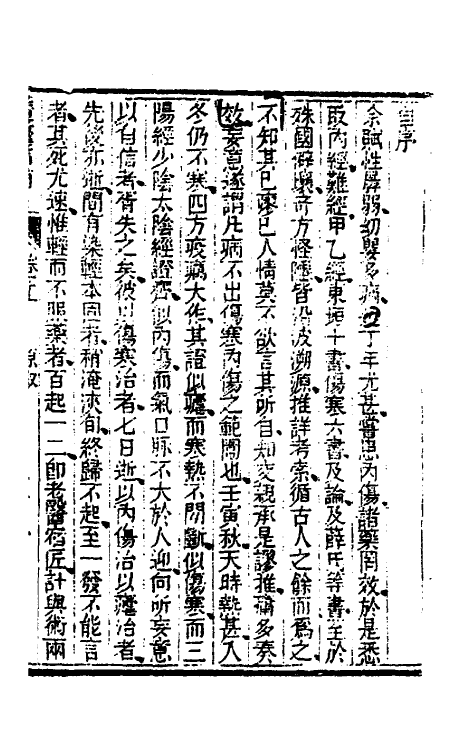 自序
余賦性孱弱幼嬰多病丁年尤甚嘗患內傷諸藥罔效於是悉
取內經難經甲乙經東垣十書傷寒六書及論及薛氏等書至於
殊國僻壤奇方怪陸皆沿波溯源推詳考索循古人之餘而為之
不知其已謬已人情莫不欲言其所自知交親承是謬推稱多奏
效妄意遂謂凡病不出傷寒內傷之範圍也壬寅秋天時熱甚入
冬仍不寒四方疫癘大作其證似瘧而寒熱不間斷似傷寒而三
陽經少陰太陰經證齊似內傷而氣口脈不大於人迎向所妄意
以自信者胥失之矣彼以傷寒治者七日逝以內傷治以瘧治者
先後亦逝間有染輕本固者稍淹浹旬終歸不起至一發不能言
者其死尤速惟輕而不服藥者百起一二即老醫宿匠計與術兩